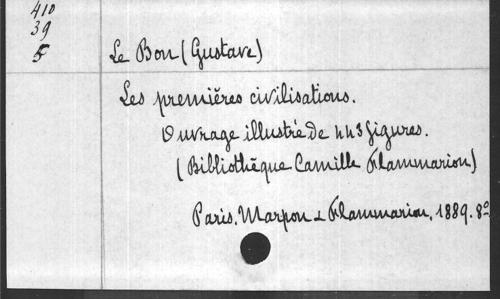 410
39
5
Le Bon (Gustave)
Les premières civilisations.
Ouvrage illustré de 443 figures.
(Bibliothèque Camille Flammarion)
Paris. Marpon & Flammarion, 1889. 8º